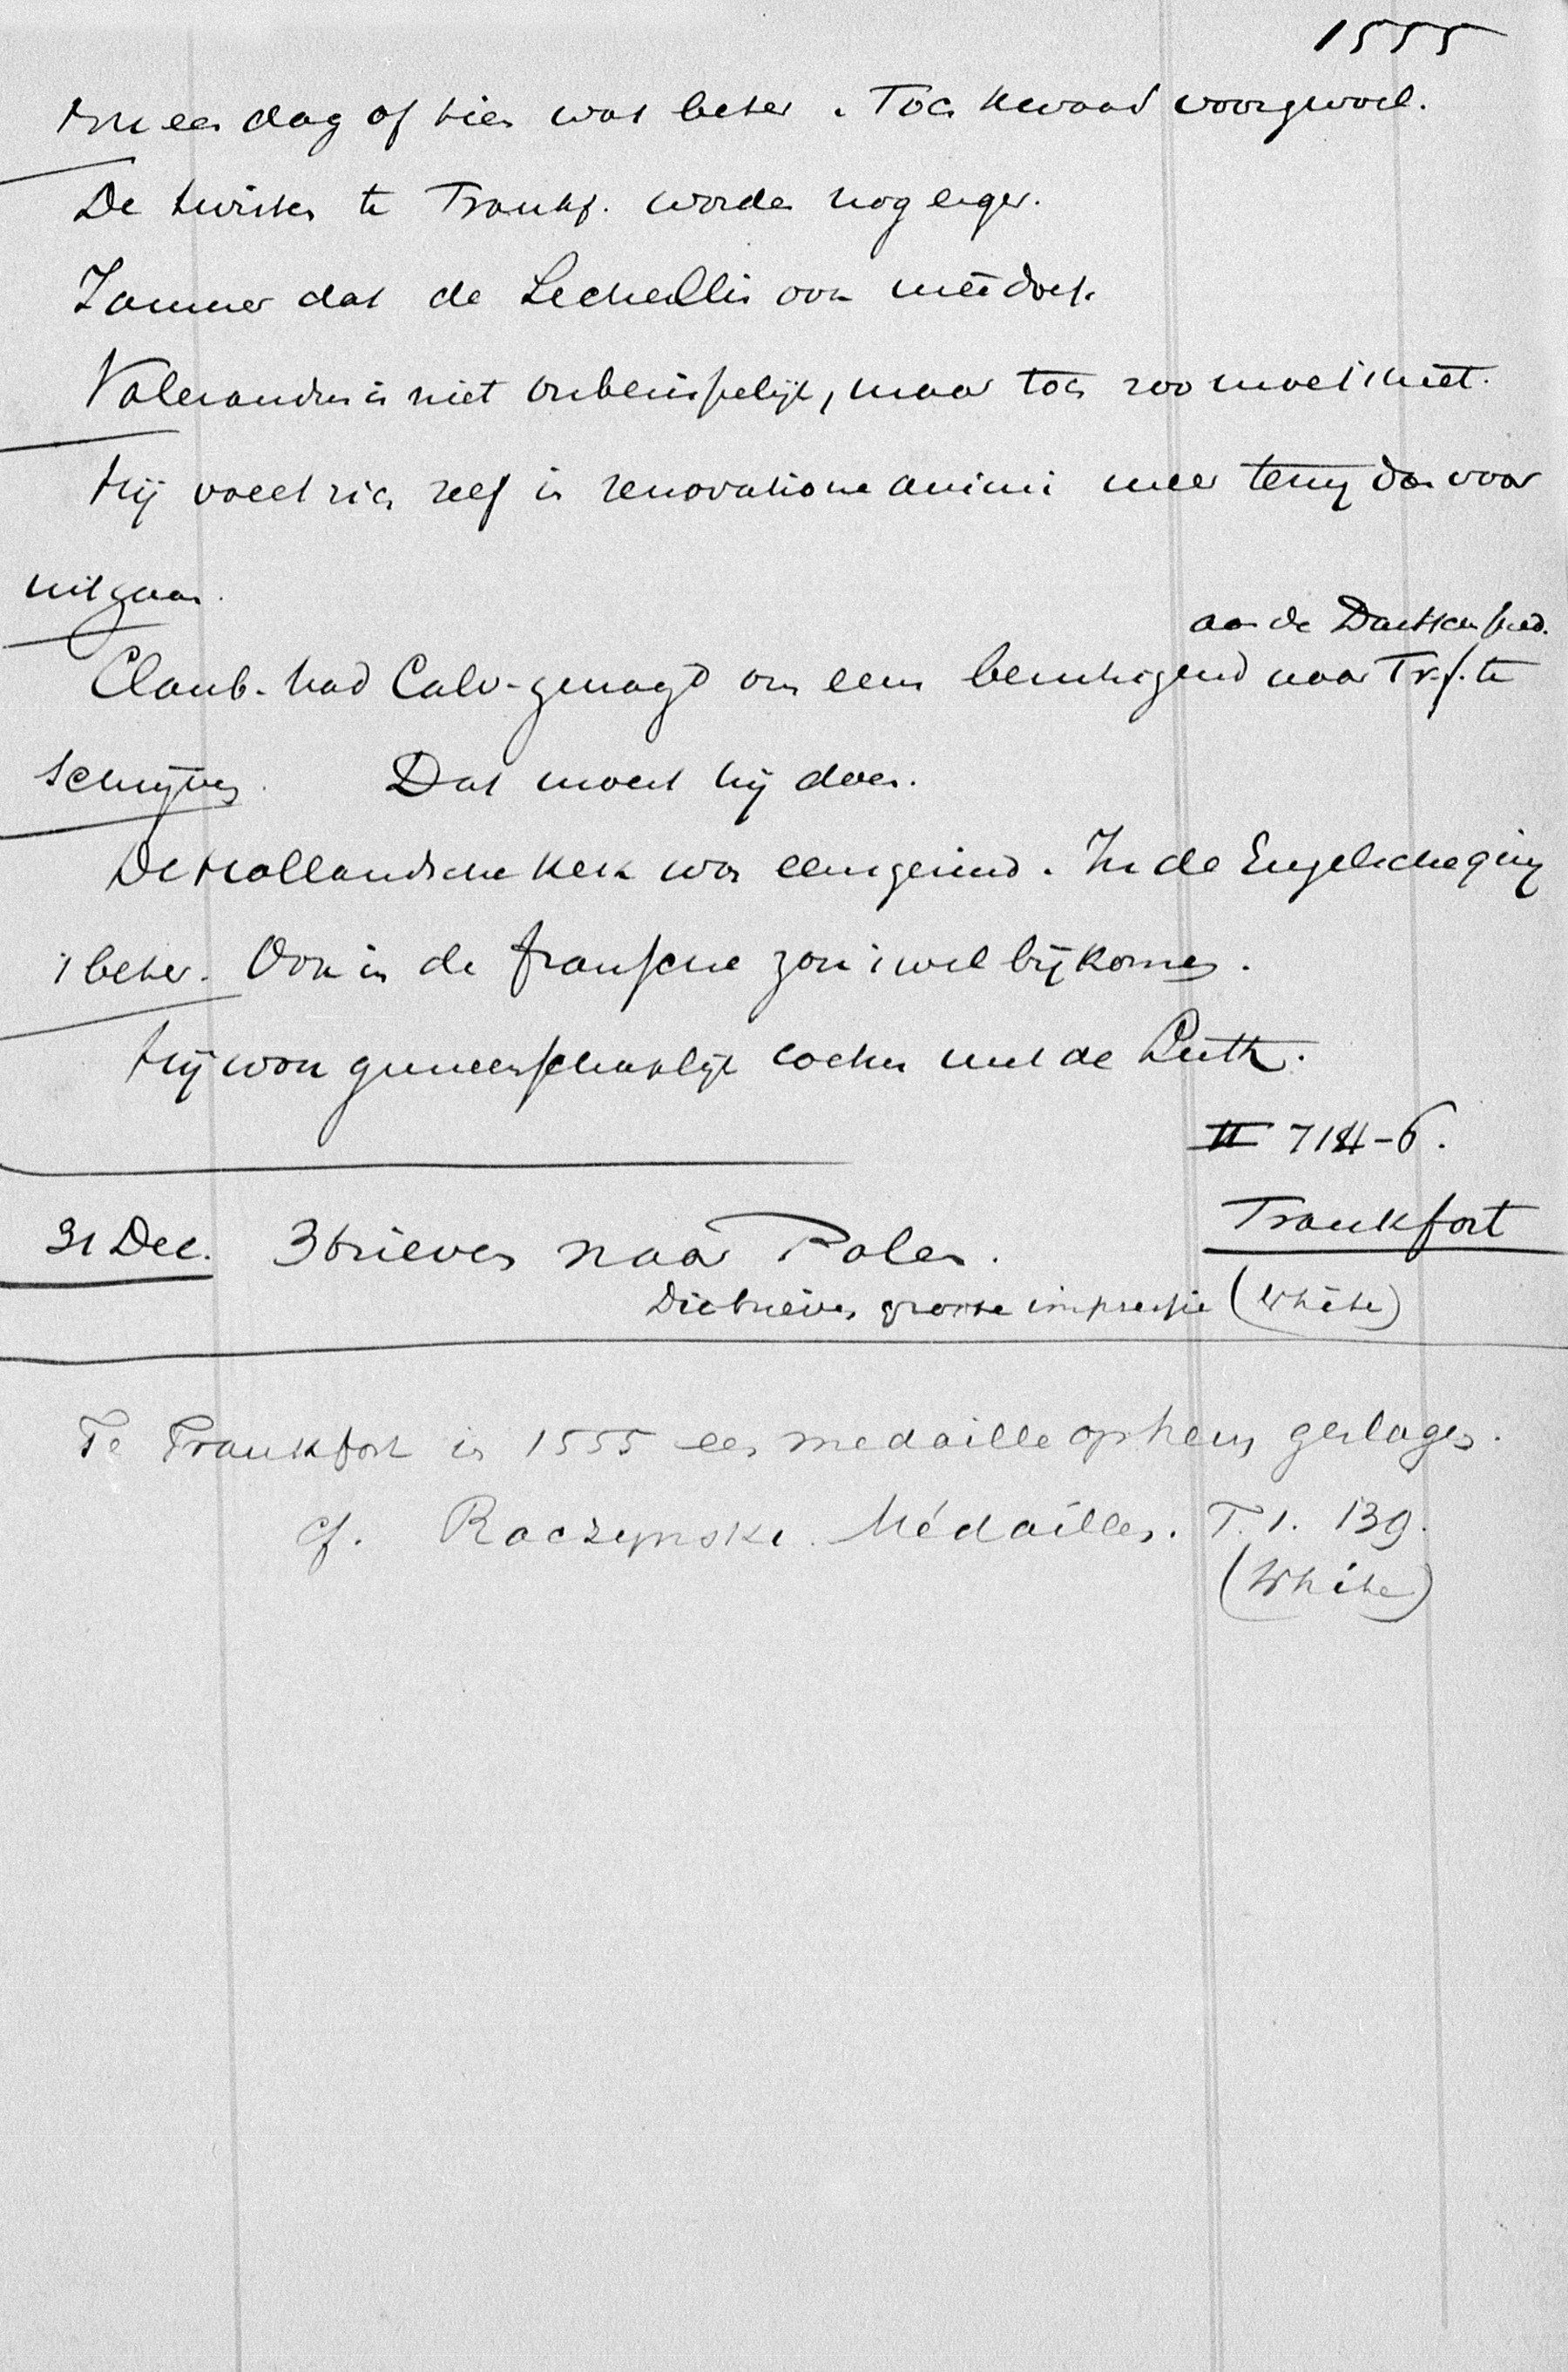 1555
een dag of tien wat beter. Toch kwaad voorgevoel.
De twisten te Frankf. worden nog erger.
Jammer dat de Lechellis ook meedoet.
Valerandus is niet onberispelijk, maar toch zoo moet 't niet.
Hij voelt zich zelf in renovatione animi meer terug dan voor
uitgaan.
aan de Duitschen pred.
Claub. had Calv. gevraagd om eens beruhigend naar Frf. te
schrijven. Dat moest hij doen.
De Hollandsche kerk was eensgezind. In de Engelsche ging
't beter. Ook in de fransche zou 't wel bijkomen.
Hij wou gemeenschappelijk coetus met de Luth.
II 714-6.
Frankfort
31 Dec. 3 brieven naar Polen.
Die brieven groote impressie (White)
Te Frankfort in 1555 een medaille op hem geslagen.
cf. Raczynski. Médailles. T.1. 139.
(White)